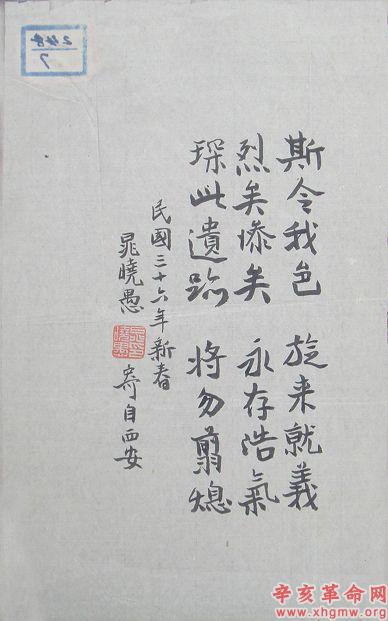 248
7
斯令我邑 旋来就義
烈矣惨矣 永存浩氣
琛此遺跡 将勿翦熄
民國三十六年新春
晁曉愚 寄自西安
辛亥革命网
www.xhgmw.org